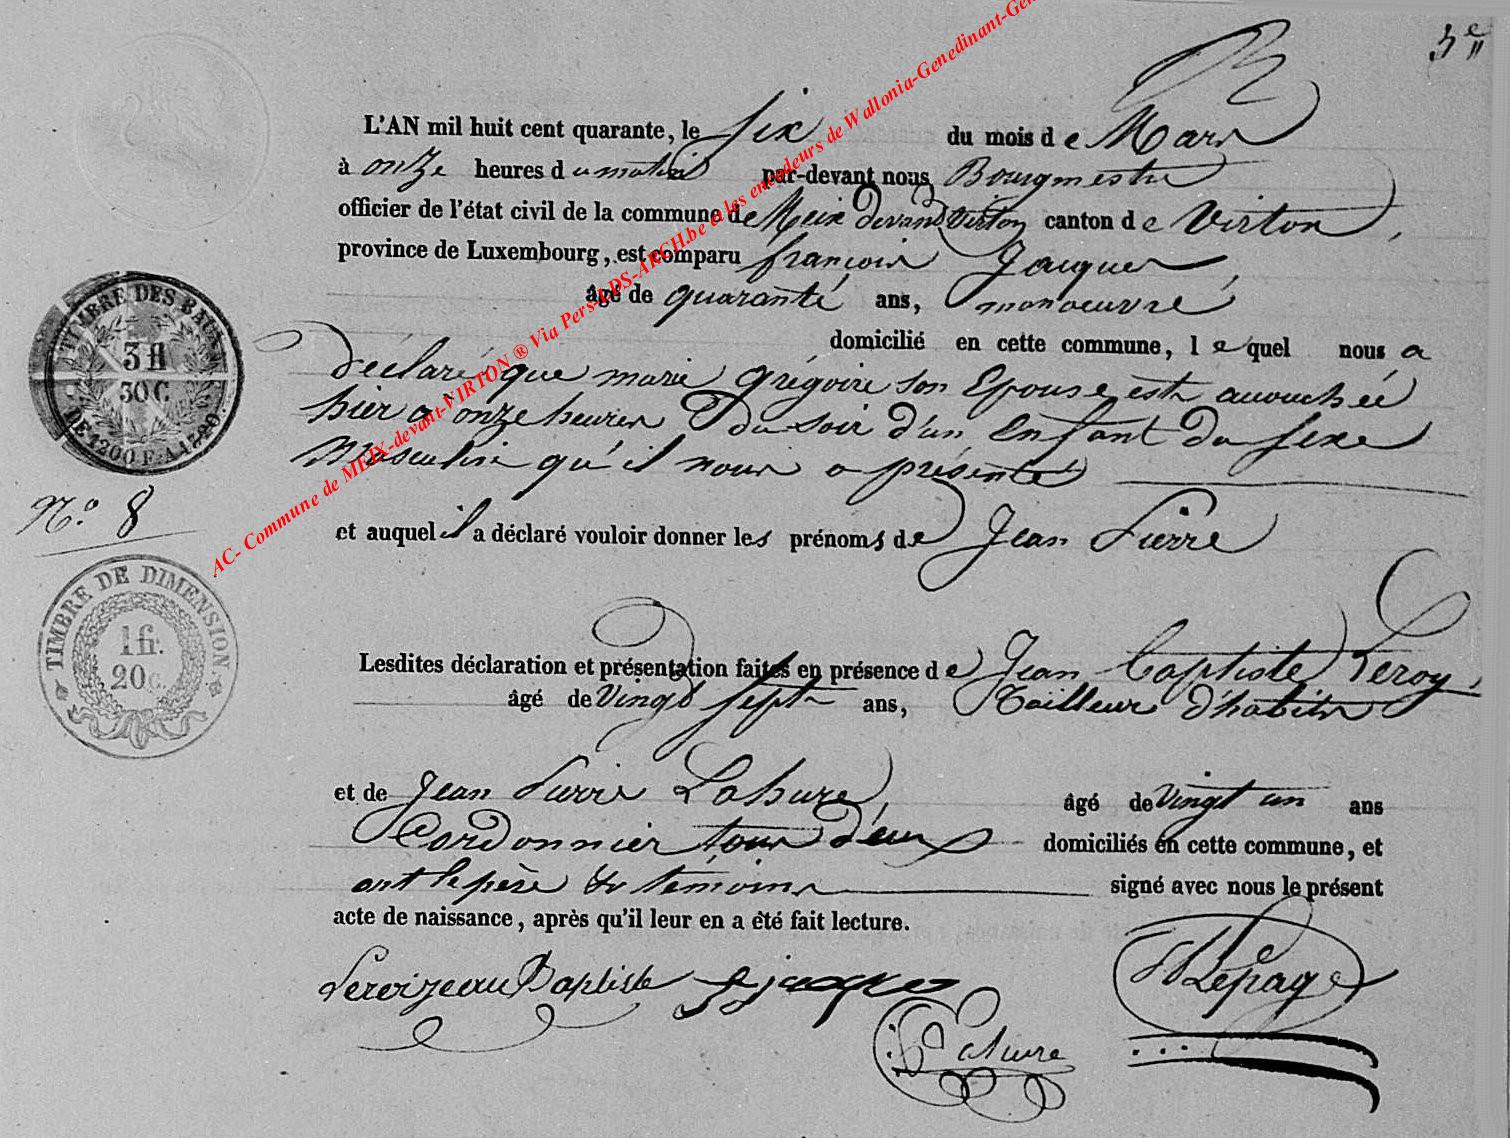 3e
L'AN mil huit cent quarante, le six du mois de Mars
à onze heures du matin par-devant nous Bourgmestre
officier de l'état civil de la commune de Meix devant Virton canton de Virton,
province de Luxembourg, est comparu françois Jacques,
âgé de quarante ans, manoeuvre
domicilié en cette commune, lequel nous a
déclaré que marie grégoire son Epouse est accouchée
hier a onze heures du soir d'un Enfant du sexe
Masculin qu'il nous a présenté
et auquel il a déclaré vouloir donner les prénoms de Jean Pierre
Lesdites déclaration et présentation faites en présence de Jean Baptiste Leroy,
âgé de Vingt sept ans, Tailleur d'habits
et de Jean Pierre Lahure, âgé de Vingt un ans
Cordonnier tous d'eux domiciliés en cette commune, et
ont le père & témoins signé avec nous le présent
acte de naissance, après qu'il leur en a été fait lecture.
Baptiste
Jacques
Lahure
Lepage
TIMBRE DES BAUX
3 fl
30 C
DE 1200 F. A
N.o 8
TIMBRE DE DIMENSION
1 fr.
20 c.
AC- Commune de MEIX-devant-VIRTON ® Via Pers-LDS-ARCH.be et les encodeurs de Wallonia-Genedinant-Gen